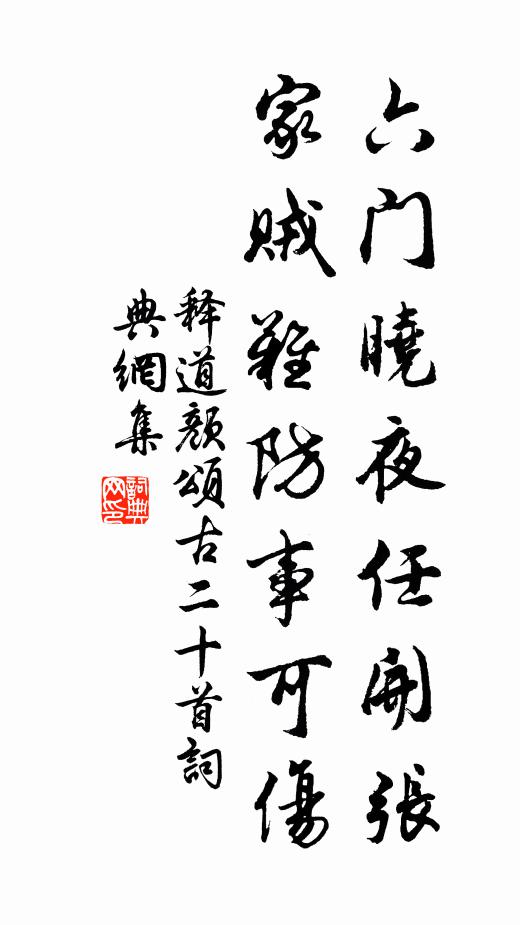 六门曉夜任開張
家賊難防事可傷
释道颜頌古二十首詞
典網集
詞典
网印